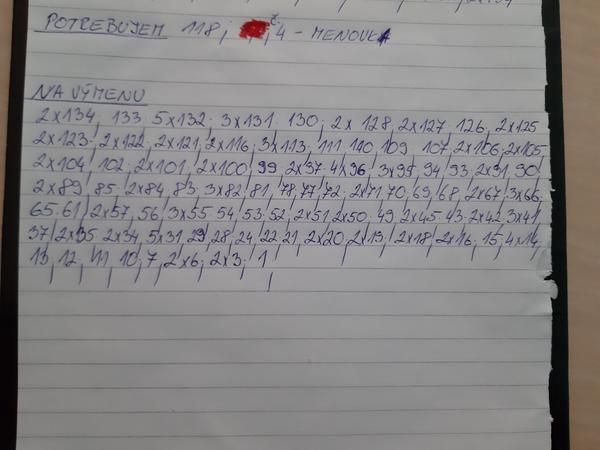 POTREBUJEM 118; č. 4 - MENOVKA
NA VÝMENU
2x134, 133, 5x132, 3x131, 130, 2x128, 2x127, 126, 2x125
2x123, 2x122, 2x121, 2x116, 3x113, 111, 110, 109, 107, 2x106, 2x105
2x104, 102, 2x101, 2x100, 99, 2x97, 4x96, 3x95, 94, 93, 2x91, 90
2x89, 85, 2x84, 83, 3x82, 81, 78, 77, 72, 2x71, 70, 69, 68, 2x67, 3x66,
65, 61, 2x57, 56, 3x55, 54, 53, 52, 2x51, 2x50, 49, 2x45, 43, 2x42, 3x41
37, 2x35, 2x34, 5x31, 29, 28, 24, 22, 21, 2x20, 2x19, 2x18, 2x16, 15, 4x14,
13, 12, 11, 10, 7, 2x6, 2x3, 1